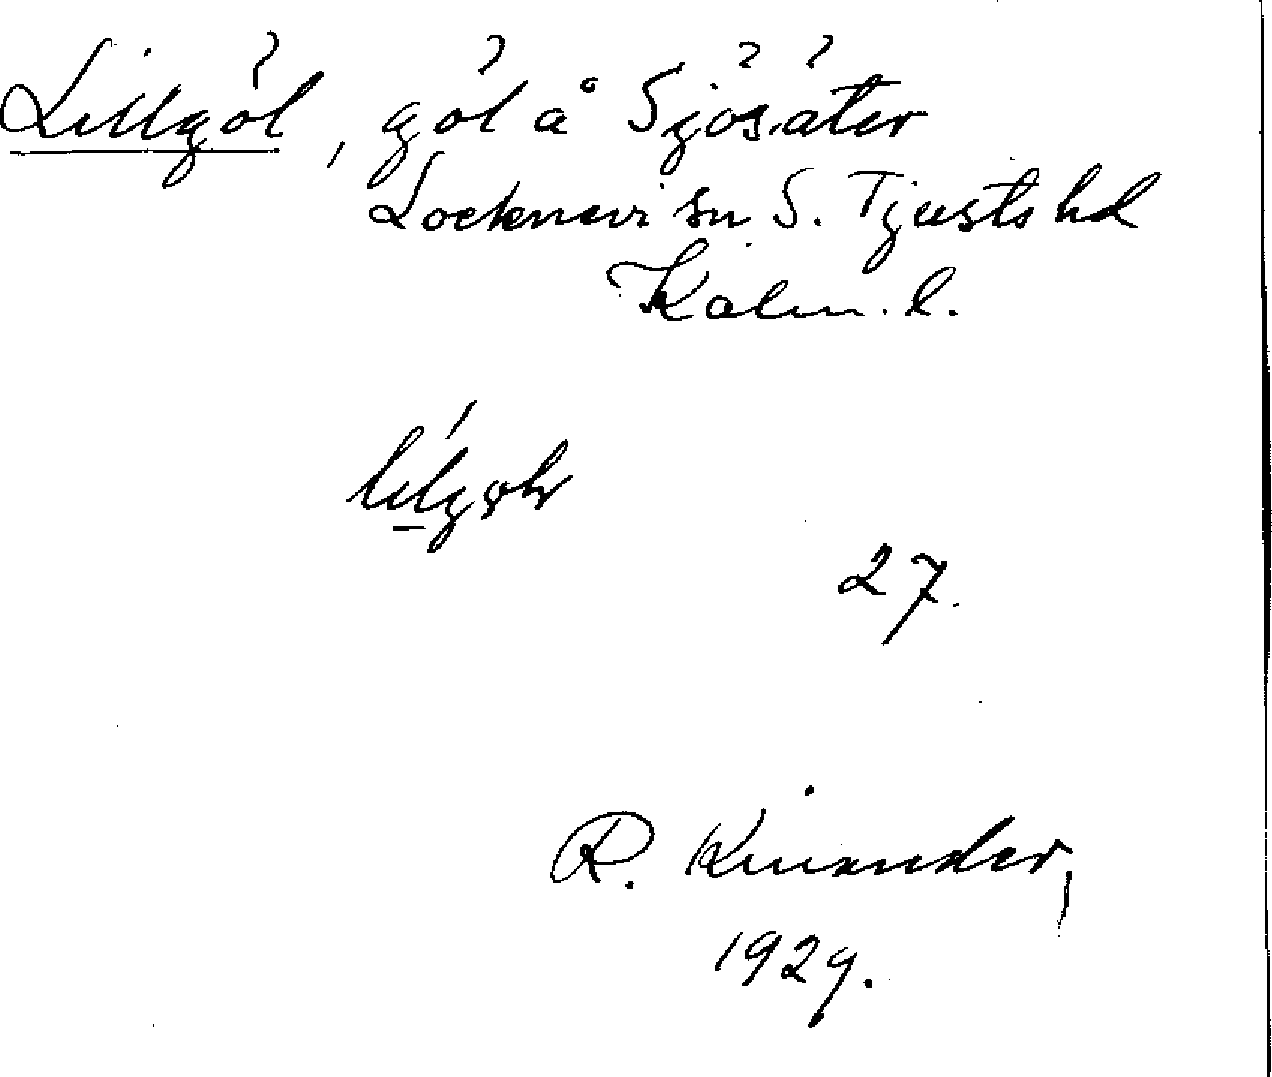 Lillgöl, göl å Sjösäter
Locknevi sn S. Tjusts hd
Kalm. l.
27.
R. Kinander,
1929.